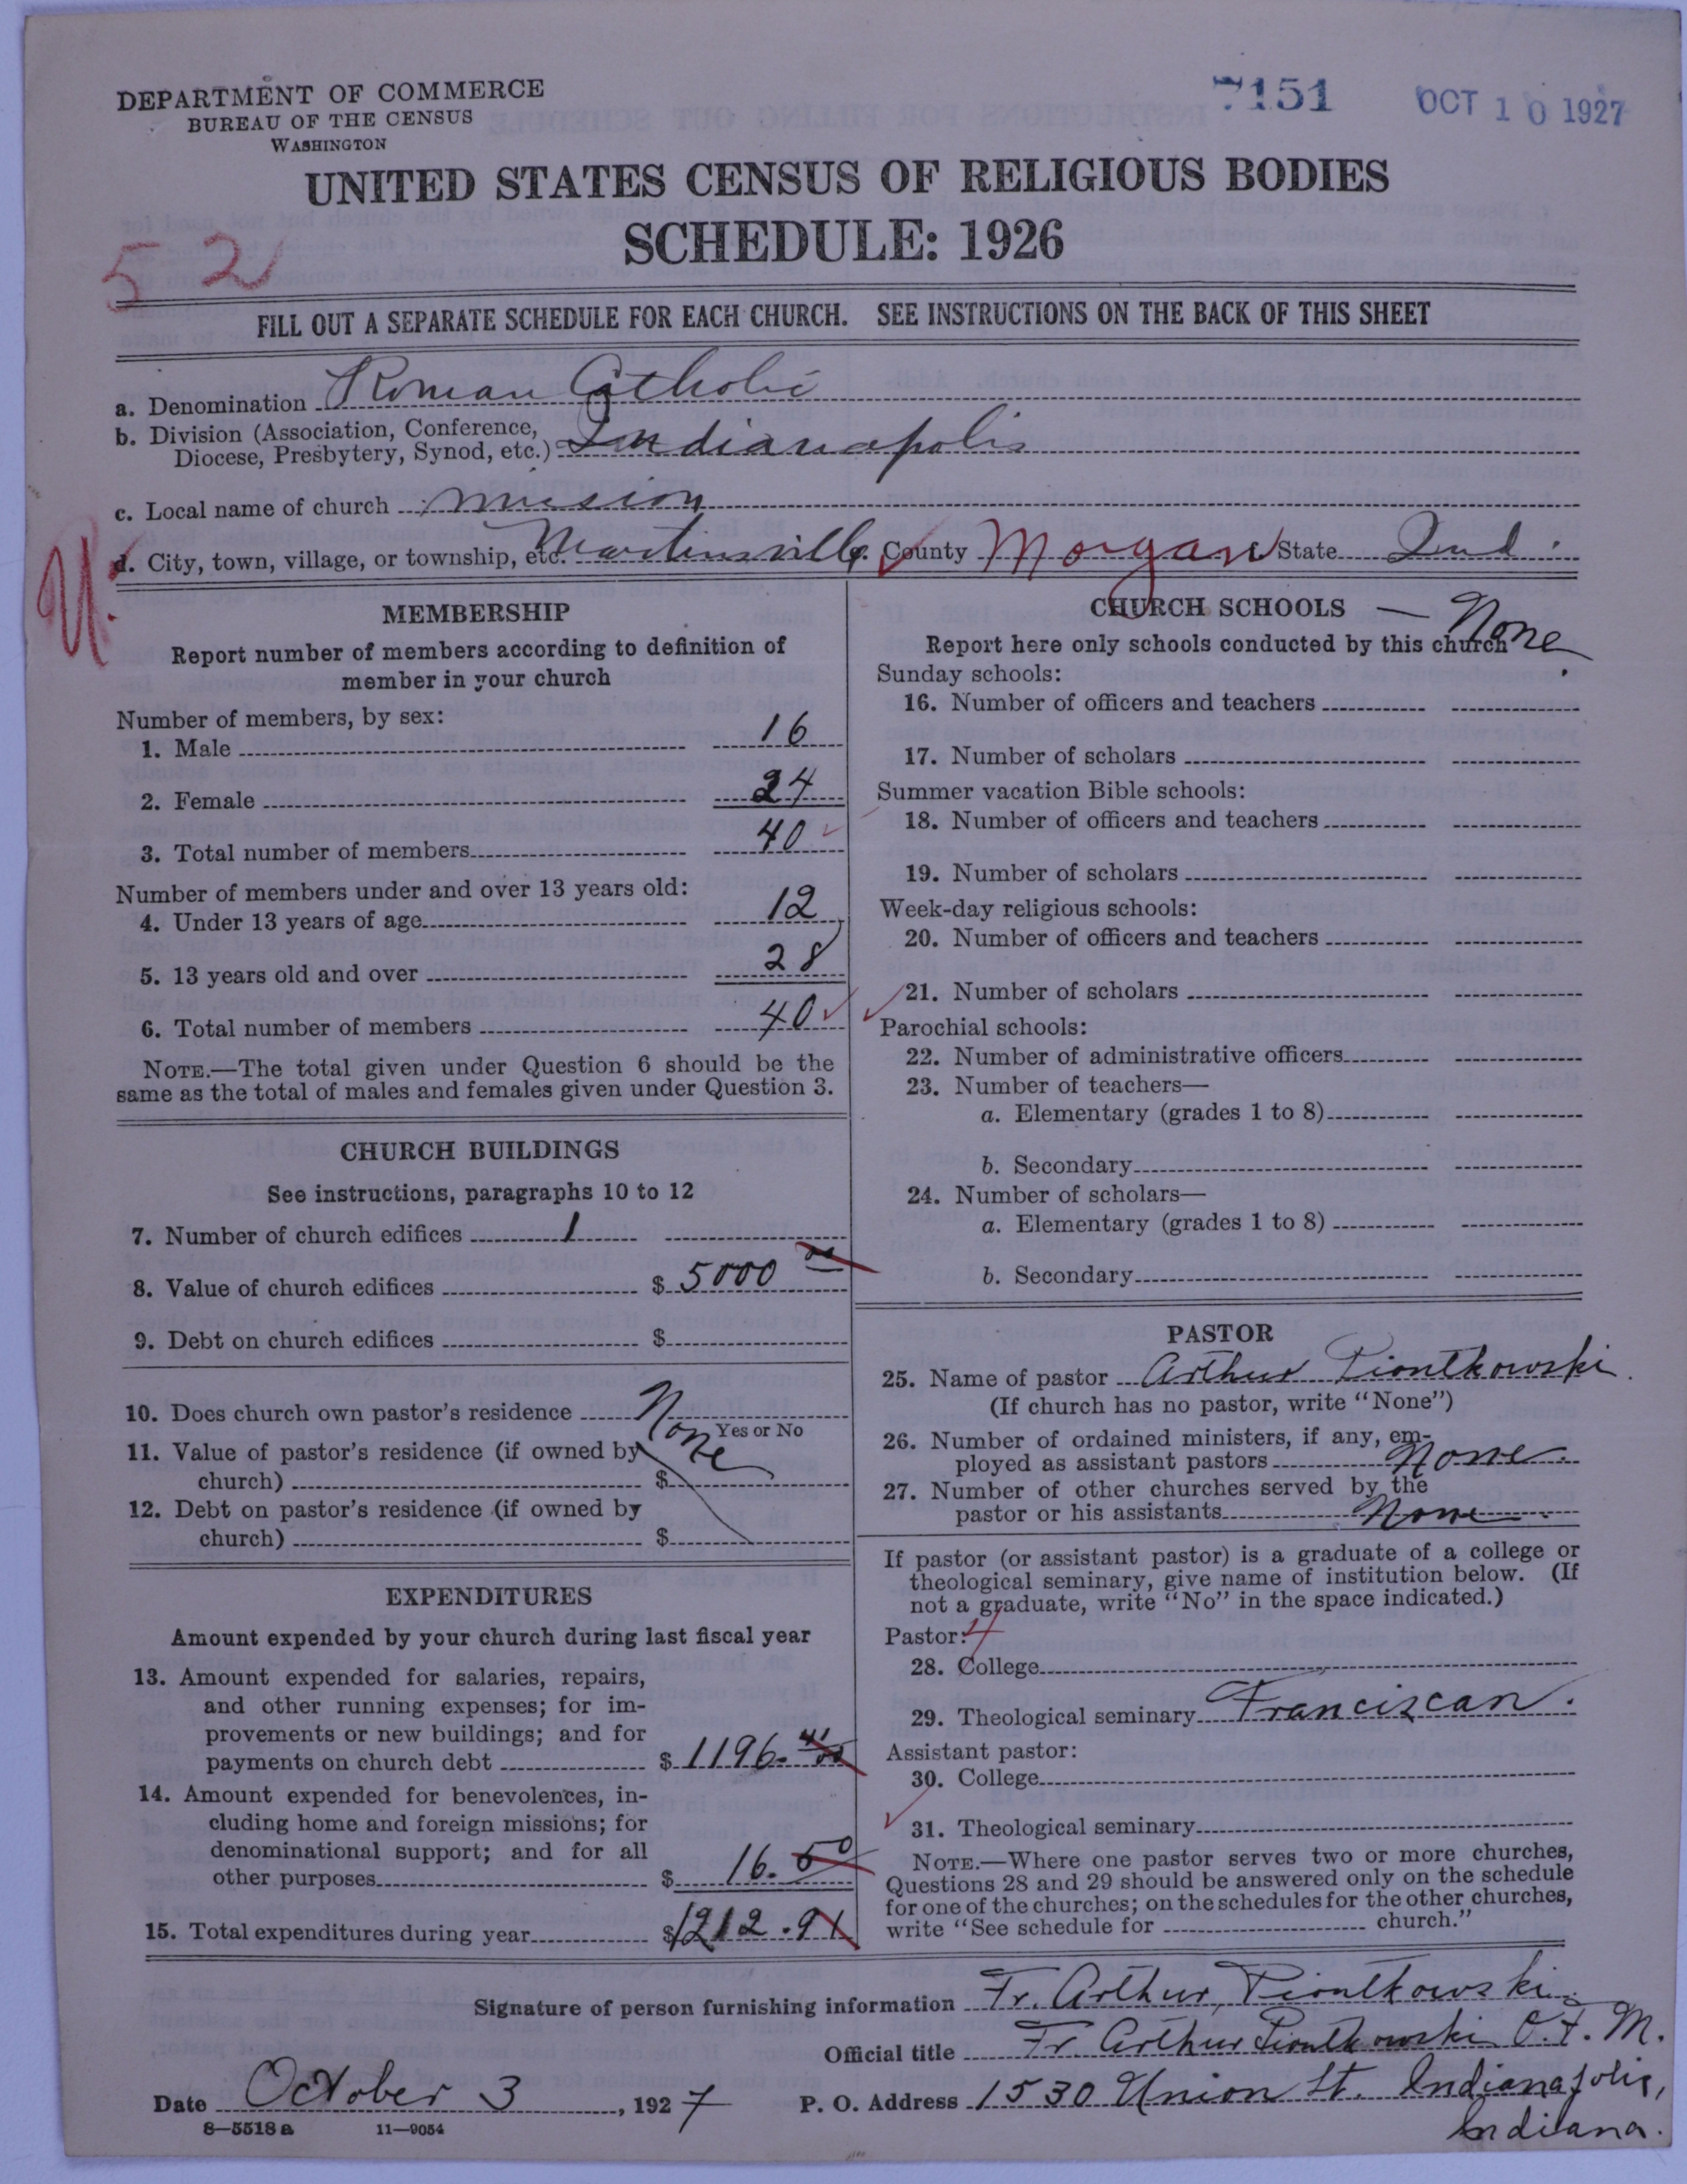 DEPARTMENT OF COMMERCE
BUREAU OF THE CENSUS
WASHINGTON
7151 OCT 10 1927
UNITED STATES CENSUS OF RELIGIOUS BODIES
SCHEDULE: 1926
52
FILL OUT A SEPARATE SCHEDULE FOR EACH CHURCH. SEE INSTRUCTIONS ON THE BACK OF THIS SHEET
a. Denomination Roman Catholic
b. Division (Association, Conference,
Diocese, Presbytery, Synod, etc.) Indianapolis
c. Local name of church mission
d. City, town, village, or township, etc. Martinsville. County Morgan State Ind.
U.
MEMBERSHIP
Report number of members according to definition of
member in your church
Number of members, by sex:
1. Male 16
2. Female 24
3. Total number of members 40
Number of members under and over 13 years old:
4. Under 13 years of age 12
5. 13 years old and over 28
6. Total number of members 40
NOTE.—The total given under Question 6 should be the
same as the total of males and females given under Question 3.
CHURCH BUILDINGS
See instructions, paragraphs 10 to 12
7. Number of church edifices 1
8. Value of church edifices $ 5000 00
9. Debt on church edifices $
10. Does church own pastor's residence None
Yes or No
11. Value of pastor's residence (if owned by
church) $
12. Debt on pastor's residence (if owned by
church) $
EXPENDITURES
Amount expended by your church during last fiscal year
13. Amount expended for salaries, repairs,
and other running expenses; for im-
provements or new buildings; and for
payments on church debt $ 1196. 41
14. Amount expended for benevolences, in-
cluding home and foreign missions; for
denominational support; and for all
other purposes $ 16. 50
15. Total expenditures during year $ 1212.91
CHURCH SCHOOLS — None.
Report here only schools conducted by this church
Sunday schools:
16. Number of officers and teachers
17. Number of scholars
Summer vacation Bible schools:
18. Number of officers and teachers
19. Number of scholars
Week-day religious schools:
20. Number of officers and teachers
21. Number of scholars
Parochial schools:
22. Number of administrative officers
23. Number of teachers—
a. Elementary (grades 1 to 8)
b. Secondary
24. Number of scholars—
a. Elementary (grades 1 to 8)
b. Secondary
PASTOR
25. Name of pastor Arthur Piontkowski.
(If church has no pastor, write "None")
26. Number of ordained ministers, if any, em-
ployed as assistant pastors None.
27. Number of other churches served by the
pastor or his assistants None.
If pastor (or assistant pastor) is a graduate of a college or
theological seminary, give name of institution below. (If
not a graduate, write "No" in the space indicated.)
Pastor: 4
28. College
29. Theological seminary Franciscan.
Assistant pastor:
30. College
31. Theological seminary
NOTE.—Where one pastor serves two or more churches,
Questions 28 and 29 should be answered only on the schedule
for one of the churches; on the schedules for the other churches,
write "See schedule for church."
Signature of person furnishing information Fr. Arthur Piontkowski.
Official title Fr. Arthur Piontkowski O.F.M.
Date October 3, 1927 P. O. Address 1530 Union St. Indianapolis,
Indiana.
8—5518 a 11—9054